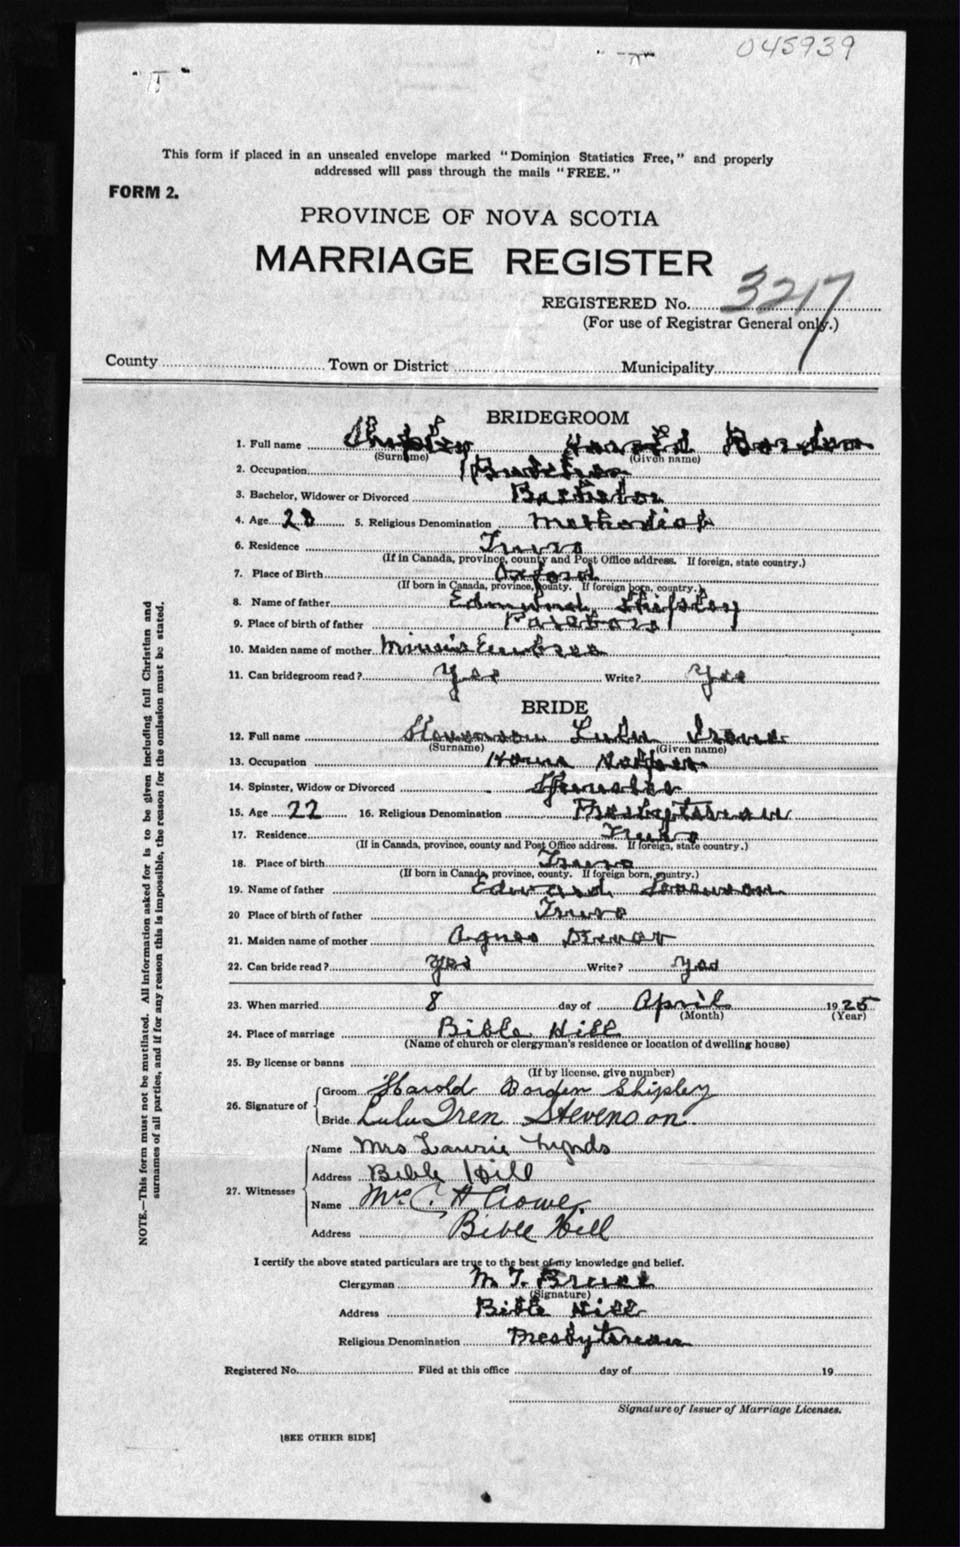 045939
This form if placed in an unsealed envelope marked "Dominion Statistics Free," and properly
addressed will pass through the mails "FREE."
FORM 2.
PROVINCE OF NOVA SCOTIA
MARRIAGE REGISTER
REGISTERED No. 3217
(For use of Registrar General only.)
County Town or District Municipality
BRIDEGROOM
1. Full name Shipley Harold Borden
(Surname) (Given name)
2. Occupation
3. Bachelor, Widower or Divorced Bachelor
4. Age 28 5. Religious Denomination Methodist
6. Residence Truro
(If in Canada, province, county and Post Office address. If foreign, state country.)
7. Place of Birth Oxford
(If born in Canada, province, county. If foreign born, country.)
8. Name of father Edmund Shipley
9. Place of birth of father
10. Maiden name of mother Minnie Embree
11. Can bridegroom read? Yes Write? Yes
BRIDE
12. Full name Stevenson Lulu Irene
(Surname) (Given name)
13. Occupation Home
14. Spinster, Widow or Divorced Spinster
15. Age 22 16. Religious Denomination Presbyterian
17. Residence Truro
(If in Canada, province, county and Post Office address. If foreign, state country.)
18. Place of birth Truro
(If born in Canada, province, county. If foreign born, country.)
19. Name of father Edward Stevenson
20 Place of birth of father Truro
21. Maiden name of mother Agnes
22. Can bride read? Yes Write? Yes
23. When married 8 day of April 1925
(Month) (Year)
24. Place of marriage Bible Hill
(Name of church or clergyman's residence or location of dwelling house)
25. By license or banns
(If by license, give number)
26. Signature of
Groom Harold Borden Shipley
Bride Lulu Iren Stevenson
27. Witnesses
Name Mrs Laurie Lynds
Address Bible Hill
Name Mrs C. H Crowe
Address Bible Hill
I certify the above stated particulars are true to the best of my knowledge and belief.
Clergyman M. T.
(Signature)
Address Bible Hill
Religious Denomination Presbyterian
Registered No. Filed at this office day of 19
Signature of Issuer of Marriage Licenses.
[SEE OTHER SIDE]
NOTE.—This form must not be mutilated. All information asked for is to be given including full Christian and
surnames of all parties, and if for any reason this is impossible, the reason for the omission must be stated.